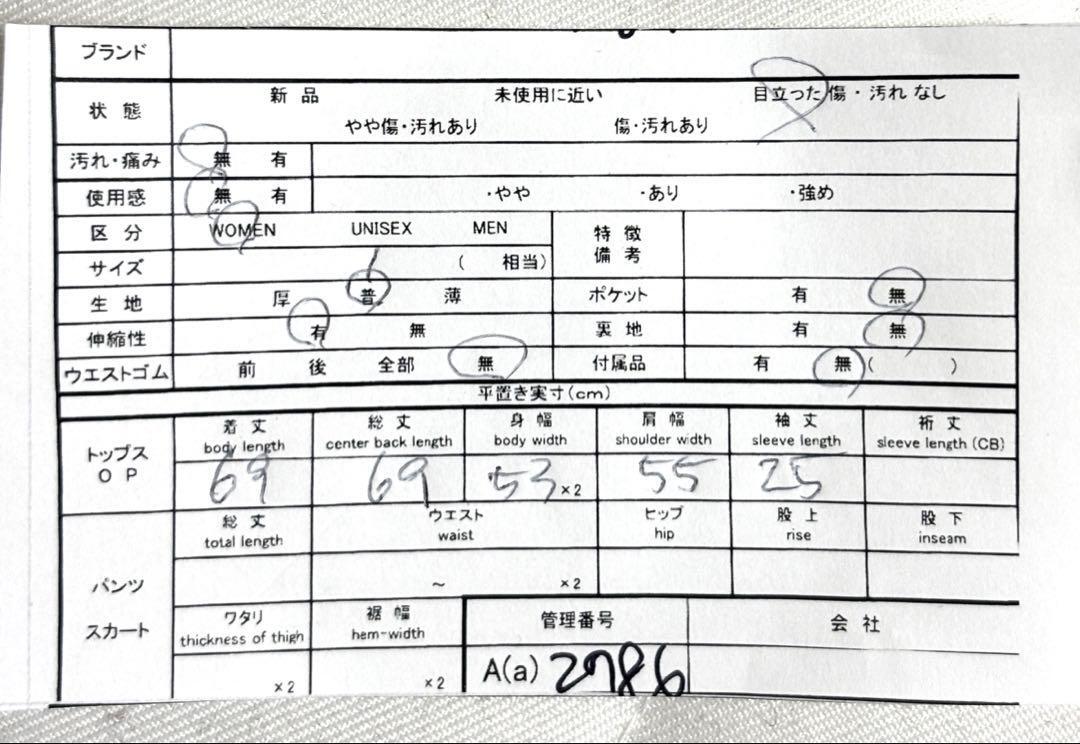 ブランド
状態 新品 未使用に近い 目立った傷・汚れなし
やや傷・汚れあり 傷・汚れあり
汚れ・痛み 無 有
使用感 無 有 ・やや ・あり ・強め
区分 WOMEN UNISEX MEN 特徴備考
サイズ ( 相当)
生地 厚 普 薄 ポケット 有 無
伸縮性 有 無 裏地 有 無
ウエストゴム 前 後 全部 無 付属品 有 無( )
平置き実寸(cm)
トップス OP
着丈 総丈 身幅 肩幅 袖丈 裄丈
body length center back length body width shoulder width sleeve length sleeve length (CB)
69 69 53 ×2 55 25
パンツ スカート
総丈 ウエスト ヒップ 股上 股下
total length waist hip rise inseam
~ ×2
ワタリ 裾幅 管理番号 会社
thickness of thigh hem-width
×2 ×2 A(a) 2786